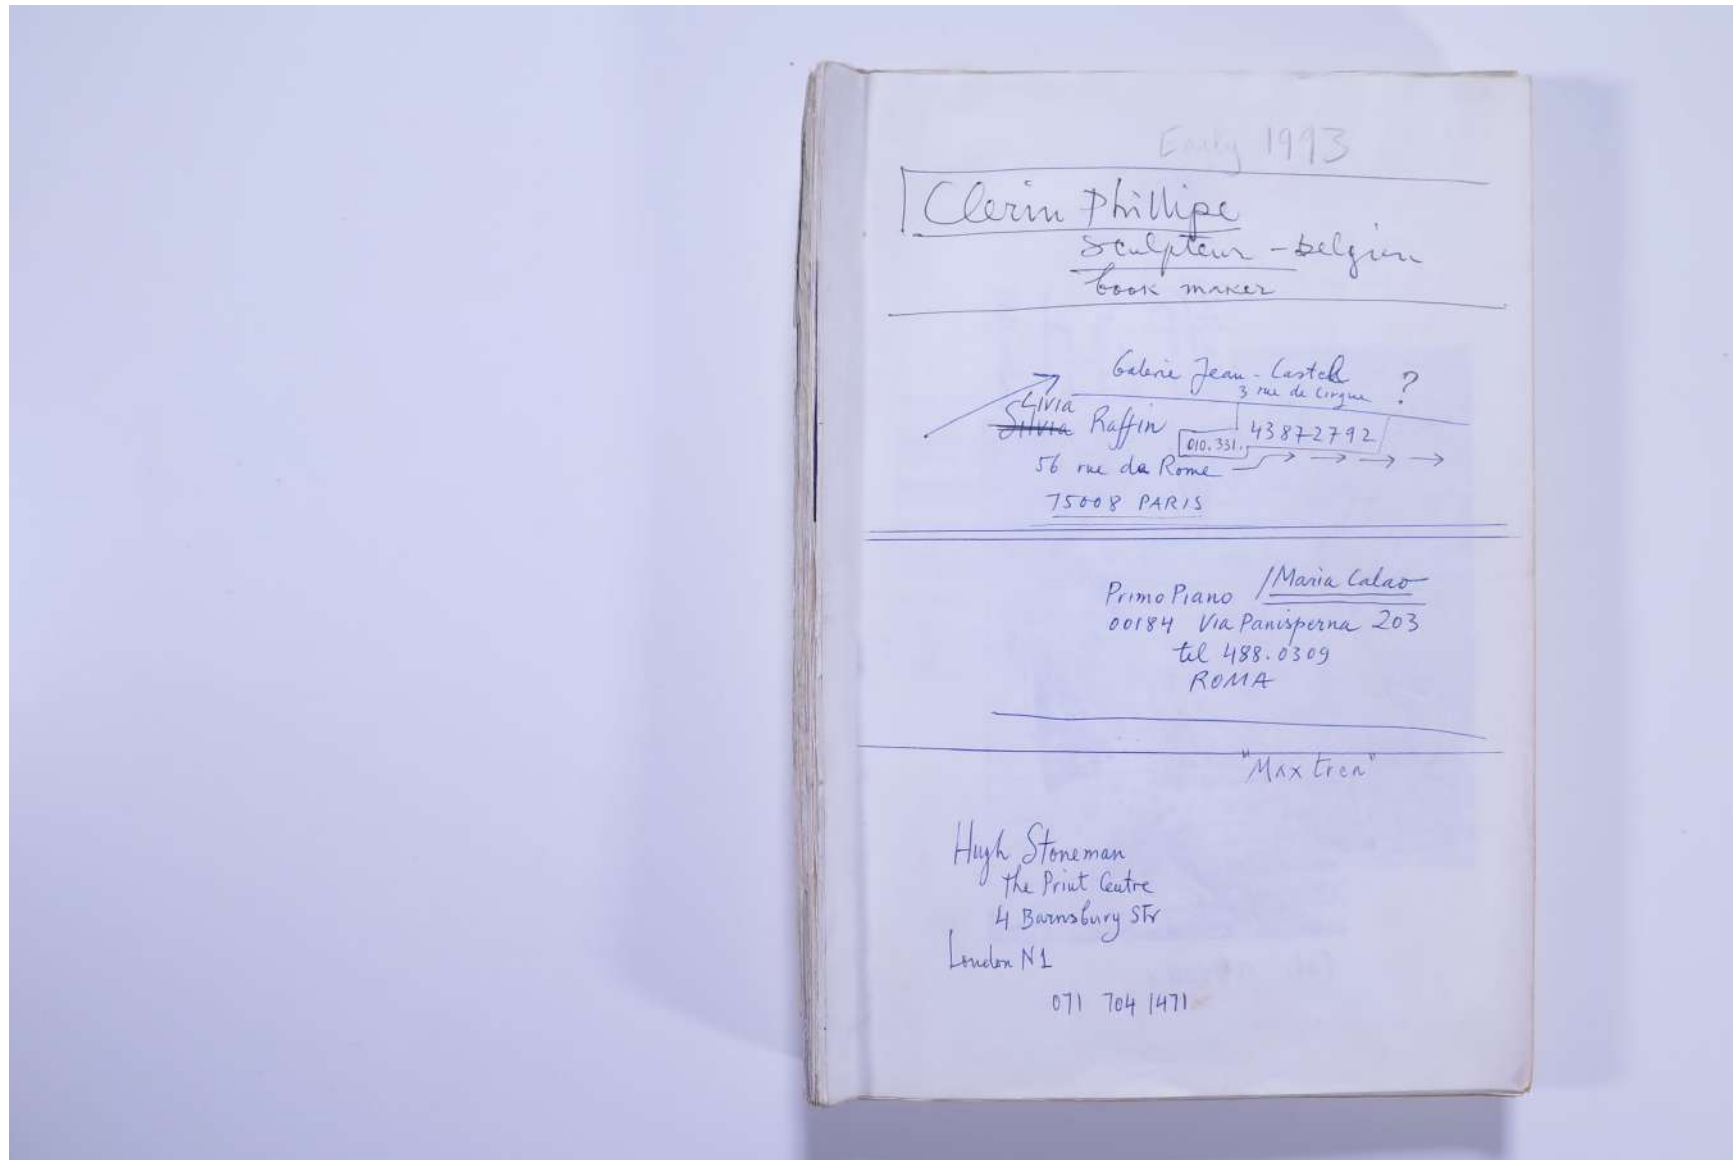 Early 1993
Clerin Phillipe
Sculpteur - Belgien
book maker
Galerie Jean-Castel
3 rue de Cirque ?
Livia
Silvia Raffin 010.331. 43872792
56 rue da Rome
75008 PARIS
Primo Piano / Maria Calao
00184 Via Panisperna 203
tel 488.0309
ROMA
"Max tren"
Hugh Stoneman
the Print Centre
4 Barnsbury Str
London N1
071 704 1471